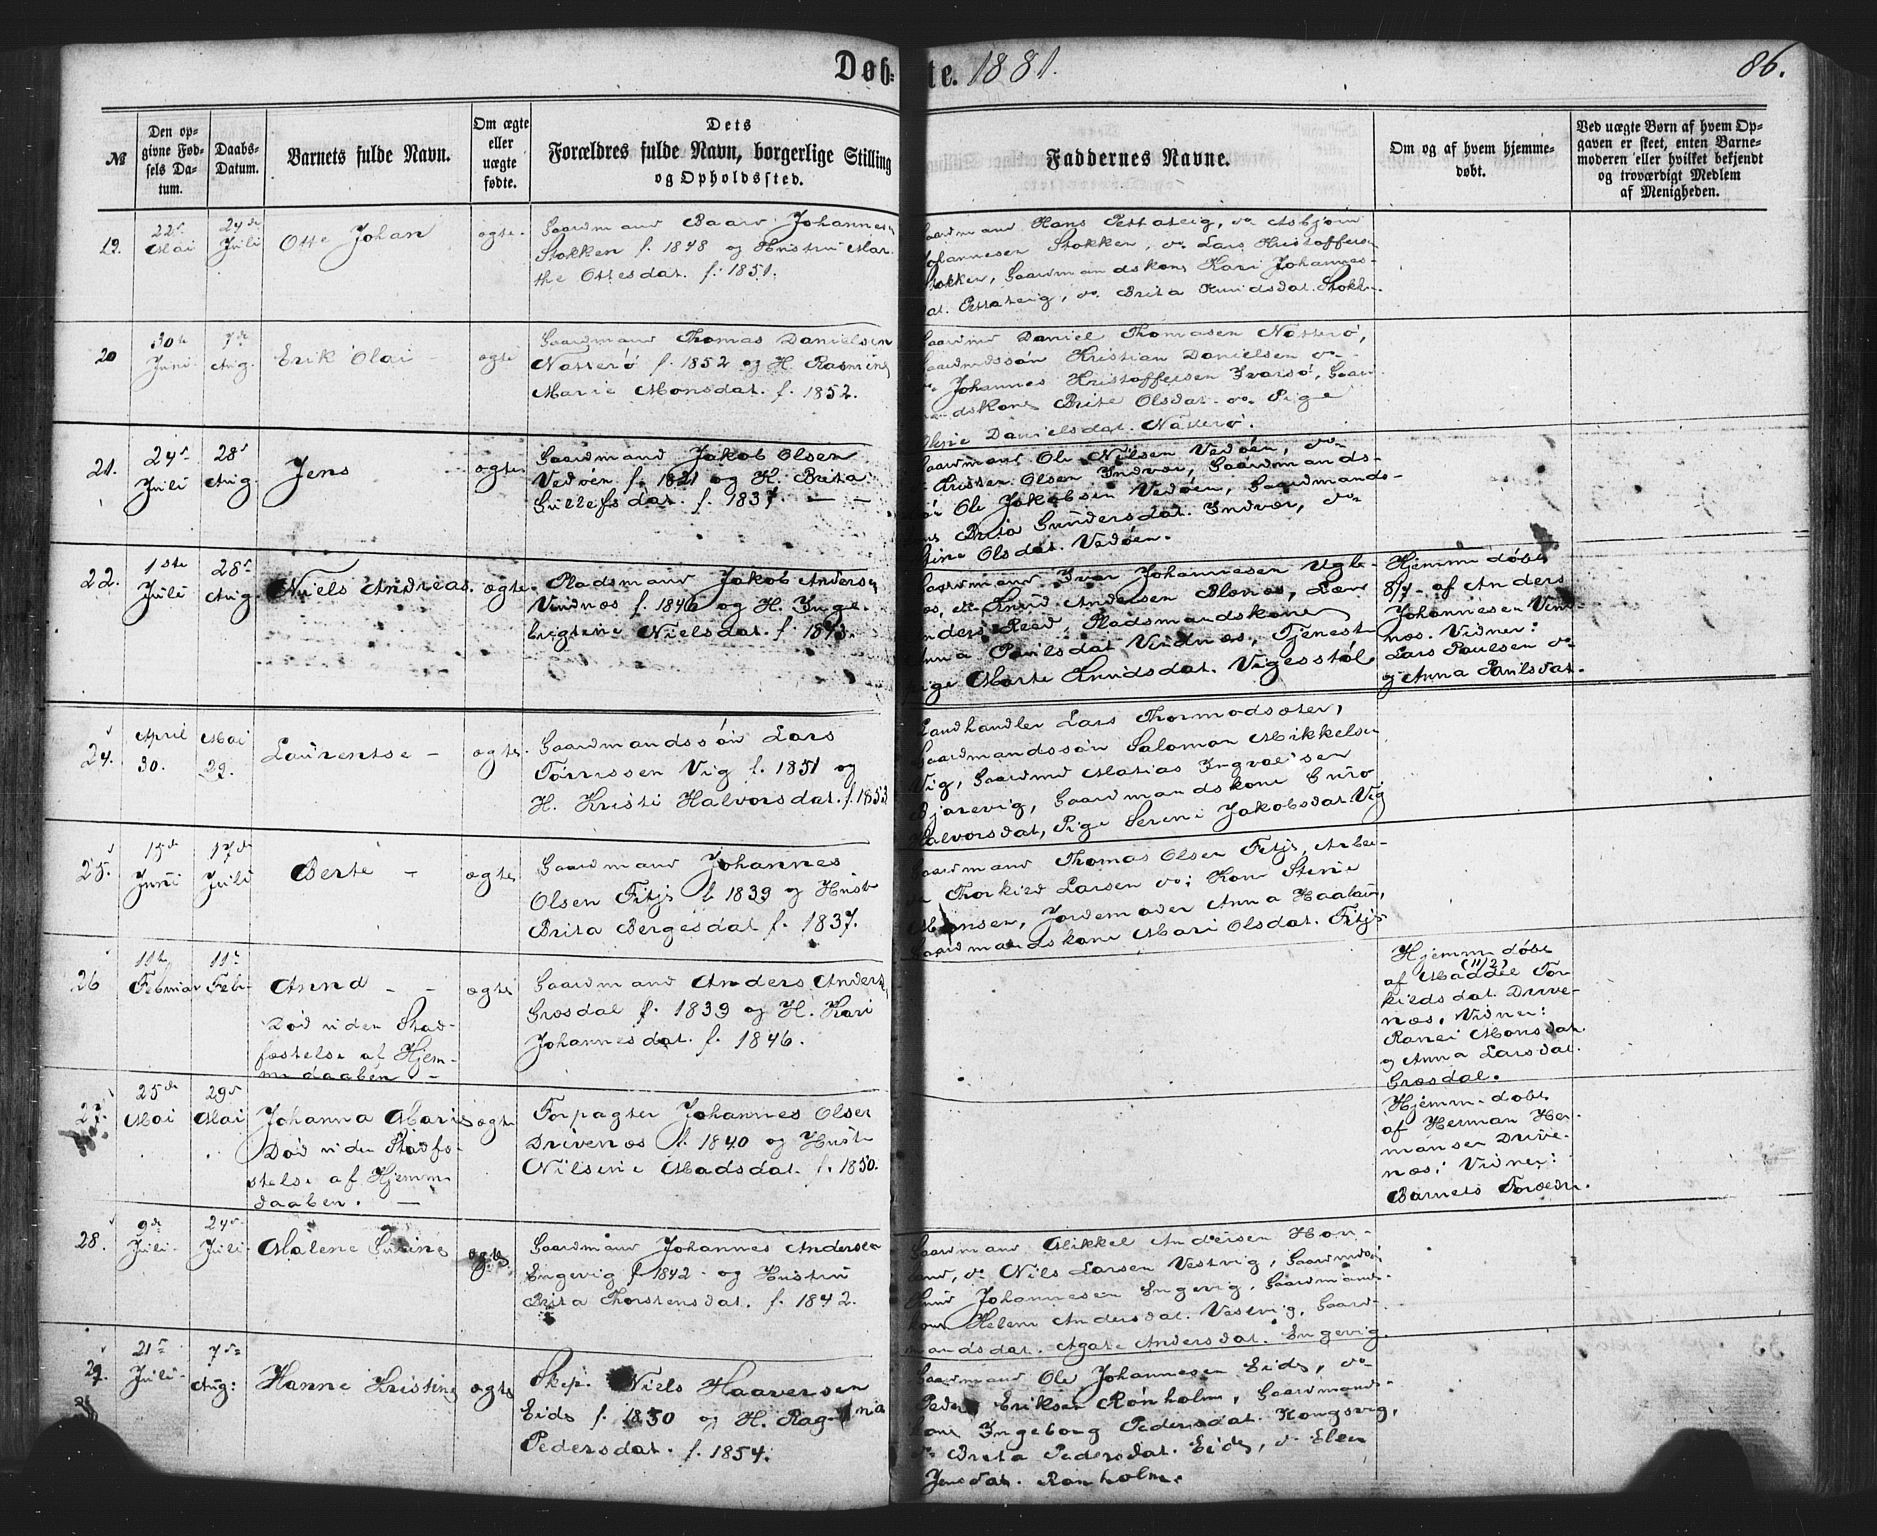 Døbte. 1881. 86.
№
Den opgivne Fødsels Datum.
Daabs-Datum.
Barnets fulde Navn.
Om ægte eller uægte fødte.
Dets Forældres fulde Navn, borgerlige Stilling og Opholdssted.
Faddernes Navne.
Om og af hvem hjemmedøbt.
Ved uægte Børn af hvem Opgaven er skeet, enten Barnemoderen eller hvilket bekjendt og troværdigt Medlem af Menigheden.
19.
22de Mai
24de Juli
Otte Johan
ægte
Gaardmand Baar Johannes
Stokken f. 1848 og Hustru Mar
the Ottesdat. f. 1851.
Gaardmand Hans Pettateig, do Asbjørn
Johannesen Stokken, do Lars Kristoffersen
Stokken, Gaardmandskone Kari Johannes-
dat. Pettateig, do Brita Knudsdat. Stokken.
20
30te Juni
7de Aug.
Erik Olai
ægte
Gaardmand Thomas Danielsen
Natterø f. 1852 og H. Rasmine
Marie Monsdat. f. 1852.
Gaardmd Daniel Thomasen Natterø,
Gaardmdssøn Kristian Danielsen do
do Johannes Kristoffersen Ivarsø, Gaar
dskone Brite Olsdat. do Pige
Danielsdat. Natterø.
21.
24de Juli
28de Aug.
Jens
ægte
Gaardmand Jakob Olsen
Vedøen f. 1821 og H. Brita
Gullefsdat. f. 1837 — —
Gaardmand Ole Nilsen Vedøen, do
Kristen Olsen Indvær, Gaardmands-
Ole Jakobsen Vedøen, Gaardmands-
Brita Gundersdat. Indvær, do
Stine Olsdat. Vedøen.
22.
1ste Juli
28de Aug.
Niels Andreas
ægte
Pladsmand Jakob Anders
Vindnæs f. 1846 og H. Inge-
Nielsdat. f. 1843.
Gaardmand Ivar Johannesen Ugle-
næs, do Knud Andersen Blænes, Lær
Anders Reed, Pladsmandskone
Anna Paulsdat Vindnæs, Tjeneste
pige Marte Knudsdat. Vigesstøl
Hjemmedøbt
8/7 af Anders
Johannesen Vin
næs. Vidner:
Lars Paulsen do
og Anna Paulsdat.
24.
April 30.
Mai 29.
Laurentse —
ægte
Gaardmandssøn Lars
Tørrissen Vig f. 1851 og
H. Kristi Halvorsdat. f. 1853
Landhandler Lars Thormodsæter,
Gaardmandssøn Salomon Mikkelsen
Vig, Gaardmd Matias Ingvalsen
Bjarevig, Gaardmandskone Guro
Halvorsdat, Pige Serene Jakobsdat. Vig
25.
15de Juni
17de Juli
Berte —
ægte
Gaardmand Johannes
Olsen Fitje f. 1839 og Hust
Brita Bergesdat f. 1837.
Gaardmand Thomas Olsen Fitje, Arbei-
Thorkild Larsen do; Kone Stine
Monsen, Jordemoder Anna Haaland,
Gaardmandskone Mari Olsdat. Fitje
26
11te Februar
11te Feb-
Amund — —
Død uden Stad-
fæstelse af Hjem-
medaaben —
ægte
Gaardmand Anders Anders
Grosdal f. 1839 og H. Kari
Johannesdat. f. 1846.
Hjemmedøbt
(11/2)
af Maddel Tor-
kildsdat. Drive-
næs. Vidner:
Ranei Monsdat
og Anna Larsdat.
Græsdal.
27.
25de Mai
29de Mai
Johanna Marie
Død uden Stadfæ-
stelse af Hjemme
daaben. —
ægte
Forpagter Johannes Olsen
Drivenæs f. 1840 og Hust
Nilsine Madsdat. f. 1850.
Hjemmedøbt
af Herman Her-
mansen Drive-
næs. Vidner:
Barnets Forældr.
28.
9de Juli
24de Juli
Malene Guline
ægte
Gaardmand Johannes Andersen
Engevig f. 1842 og Hustru
Brita Thorstensdat. f. 1842.
Gaardmand Mikkel Andersen Hov-
land, do Nils Larsen Vestvig, Gaardmdssøn
Knud Johannesen Engevig, Gaardmands-
kone Helene Andersdat. Vestvig, Gaard-
mandsdat. Agate Andersdat. Engevig.
29.
21de Juli
7de Aug:
Hanne Kristine
ægte
Skip. Niels Haaversen
Eide f. 1850 og H. Ragna
Pedersdat. f. 1854.
Gaardmand Ole Johannesen Eide, do
Peder Eriksen Rønholm, Gaardmands-
kone Ingeborg Pedersdat. Kongsvig,
do Brita Pedersdat. Eide, do Elen
Jensdat. Rønholm.